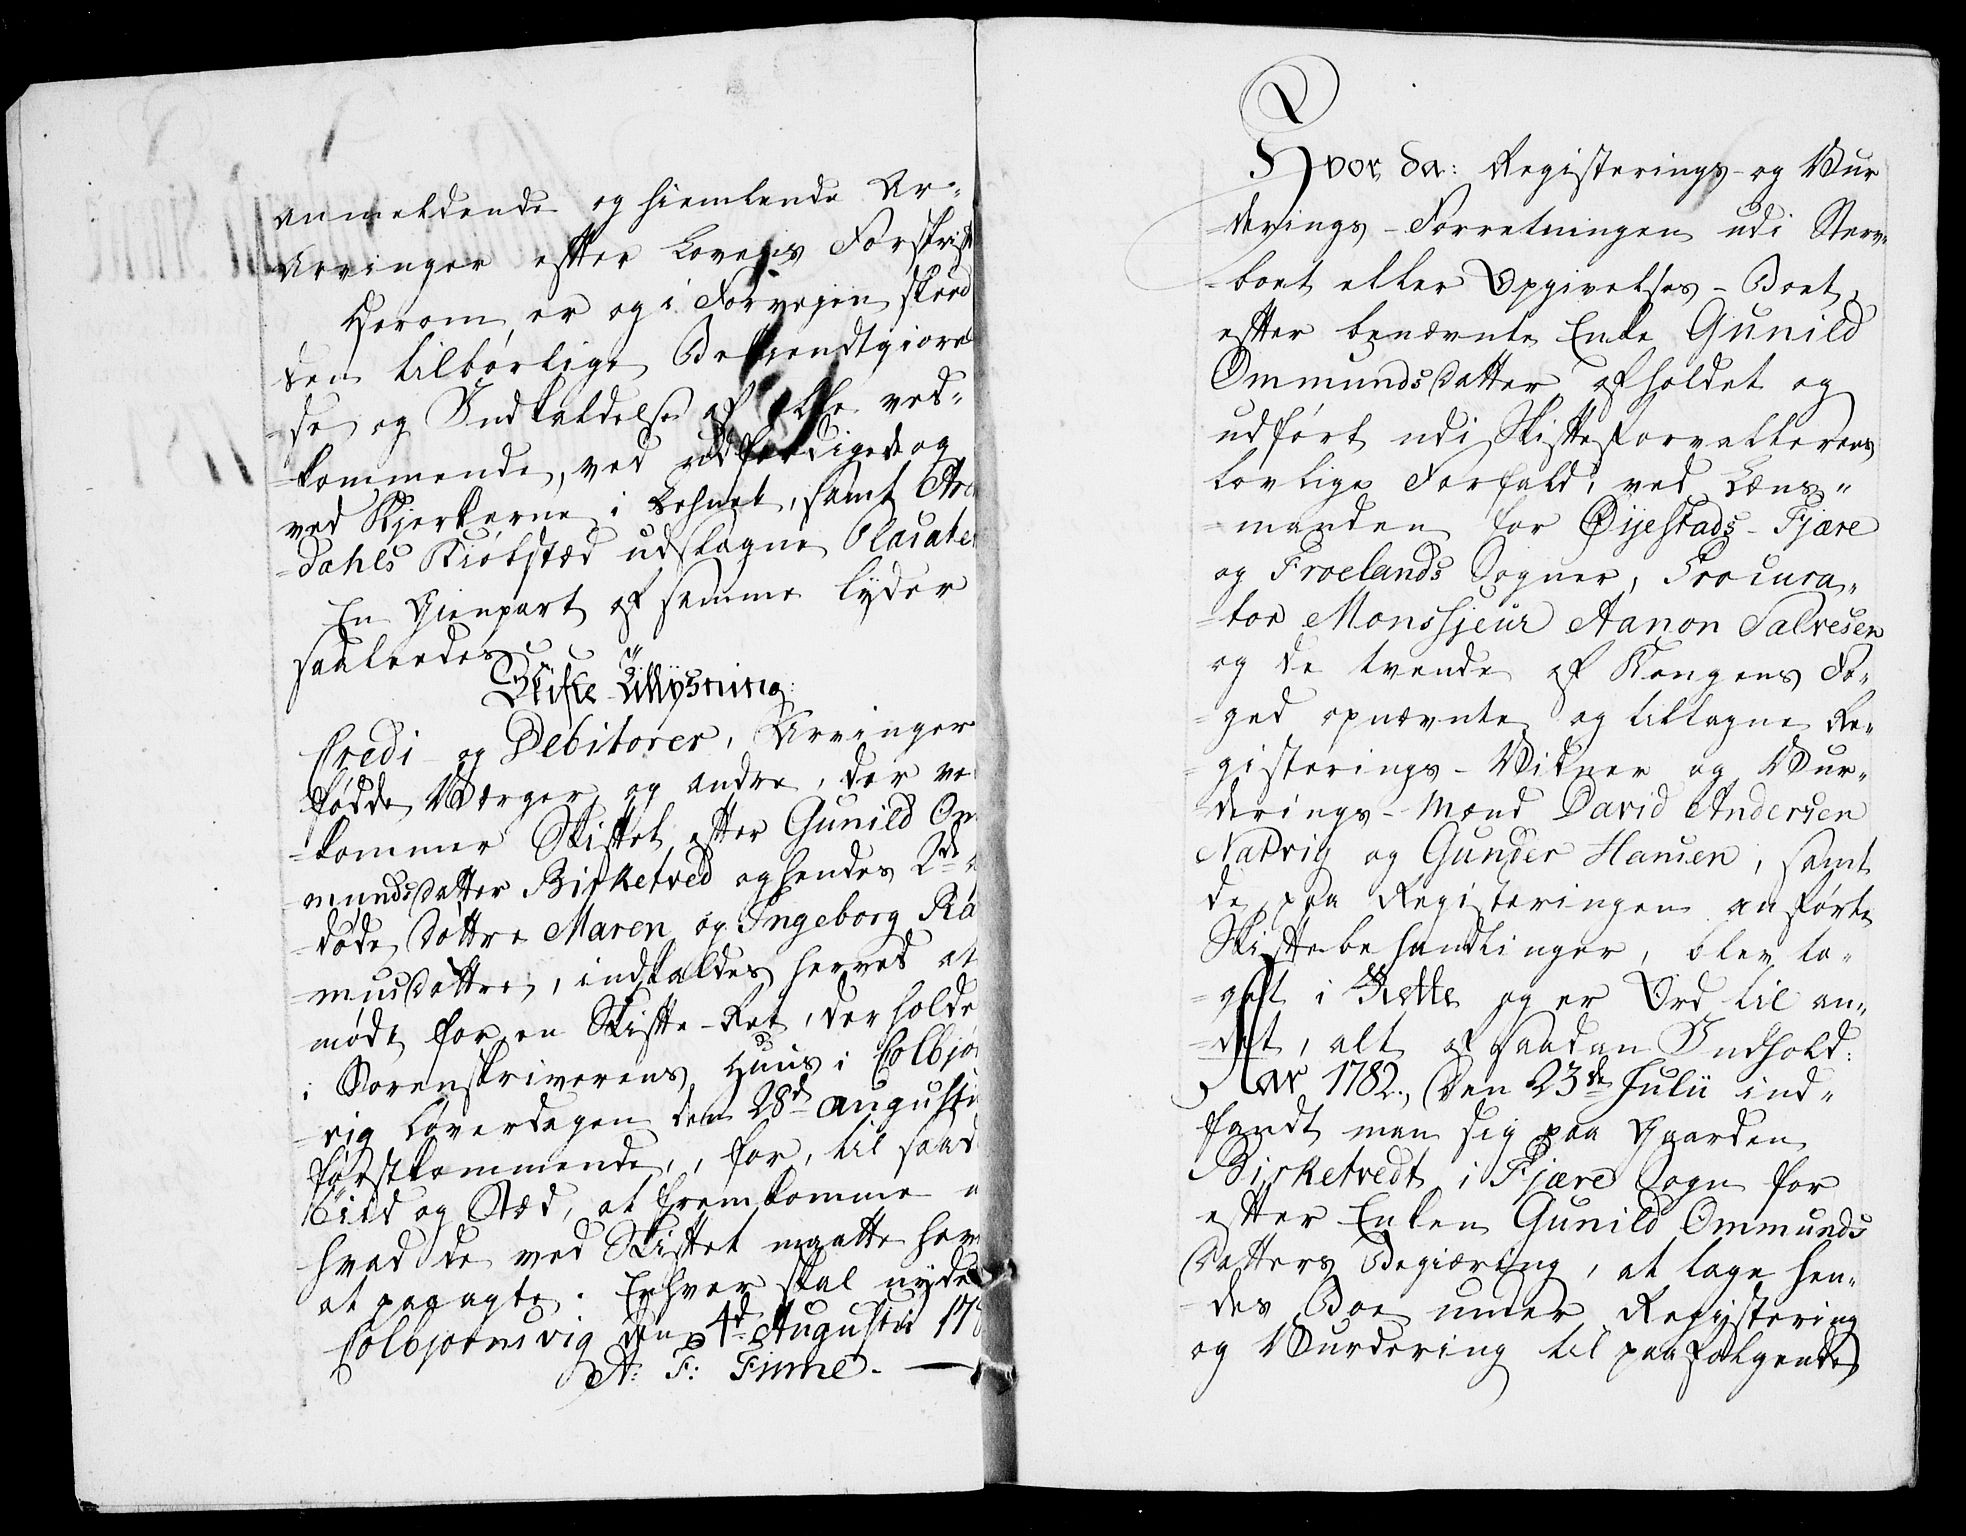 anmeldende og hiemlende Ar-
Arvinger efter Lovens Forskrift
Herom er og i Forvejen skeed
den tilbørlige Bekiendtgiørel
=se og Indkaldelse af alle ved-
=kommende, ved udfærdigede og
ved Kjerkerne i Lehnet, samt Aren
=dahls Kiøbstæd udslagne Placater
En Gienpart af samme lyder
saaledes
Skifte-Tillysning:
Credi- og Debitorer, Arvinger
fødde Værger og andre, der ved
=kommer Skiftet efter Gunild Om
=mundsdatter Birketved og hendes 2de
=døde Døttre Maren og Ingeborg Ra
=musdøttre, indkaldes herved at
møde for en Skifte-Ret, der holdes
i Sorenskriverens Huus i Colbjørns
=vig Løverdagen den 28d Augustii
førstkommende, for, til saad
Tiid og Stæd, at fremkomme
hvad de ved Skiftet maatte have
at paaagte. Enhver skal nyde
Colbjørnsvig den 4d Augustii 178
A: F: Finne.
Hvorda: Registerings- og Vur
=derings-Forretningen udi Sterv-
=boet eller Opgivelses-Boet
efter benævnte Enke Gunild
Ommundsdatter afholdet og
udført udi Skifteforvalterens
lovlige Forfald, ved Læns-
=manden for Øijestads-Fjære
og Froelands Sogner, Procura-
=tor Monssjeur Aanon Salvesen
og de tvende af Kongens Fo-
=ged opnævnte og tiltagne Re-
=gisterings-Vidner og Vur-
=derings-Mænd David Andersen
Natvig og Gunder Hansen, samt
de paa Registeringen anførte
Skiftebehandlinger, blev ta-
=get i Rette og er Ord til an-
=det, alt af saadan Indhold:
Aar 1782., Den 23de Julii ind-
fandt man sig paa Gaarden
Birketvedt i Fjære Sogn for
efter Enken Gunild Ommunds
Datters Begiæring, at tage hen-
=des Boe under Registering
og Vurdering til paafølgende